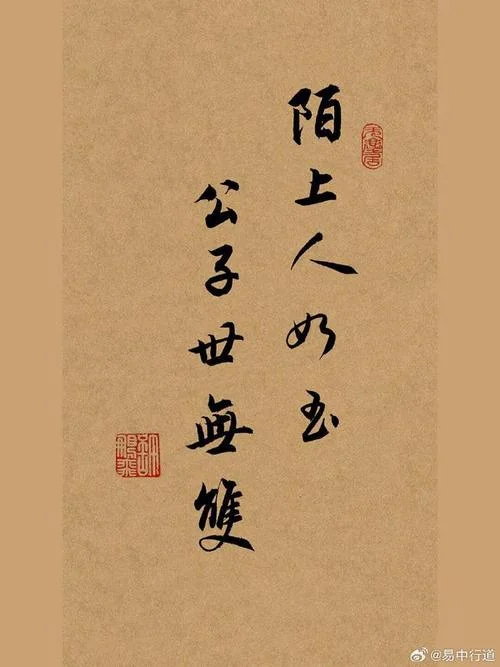 陌上人如玉
公子世無雙
@易中行道